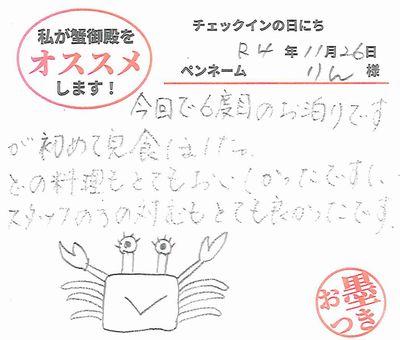 私が蟹御殿を
オススメ
します！
チェックインの日にち
R4年11月26日
ペンネーム りん 様
今回で6度目のお泊りです
が初めて完食しました。
どの料理もとてもおいしかったですし、
スタッフの方の対応もとても良かったです。
お墨つき